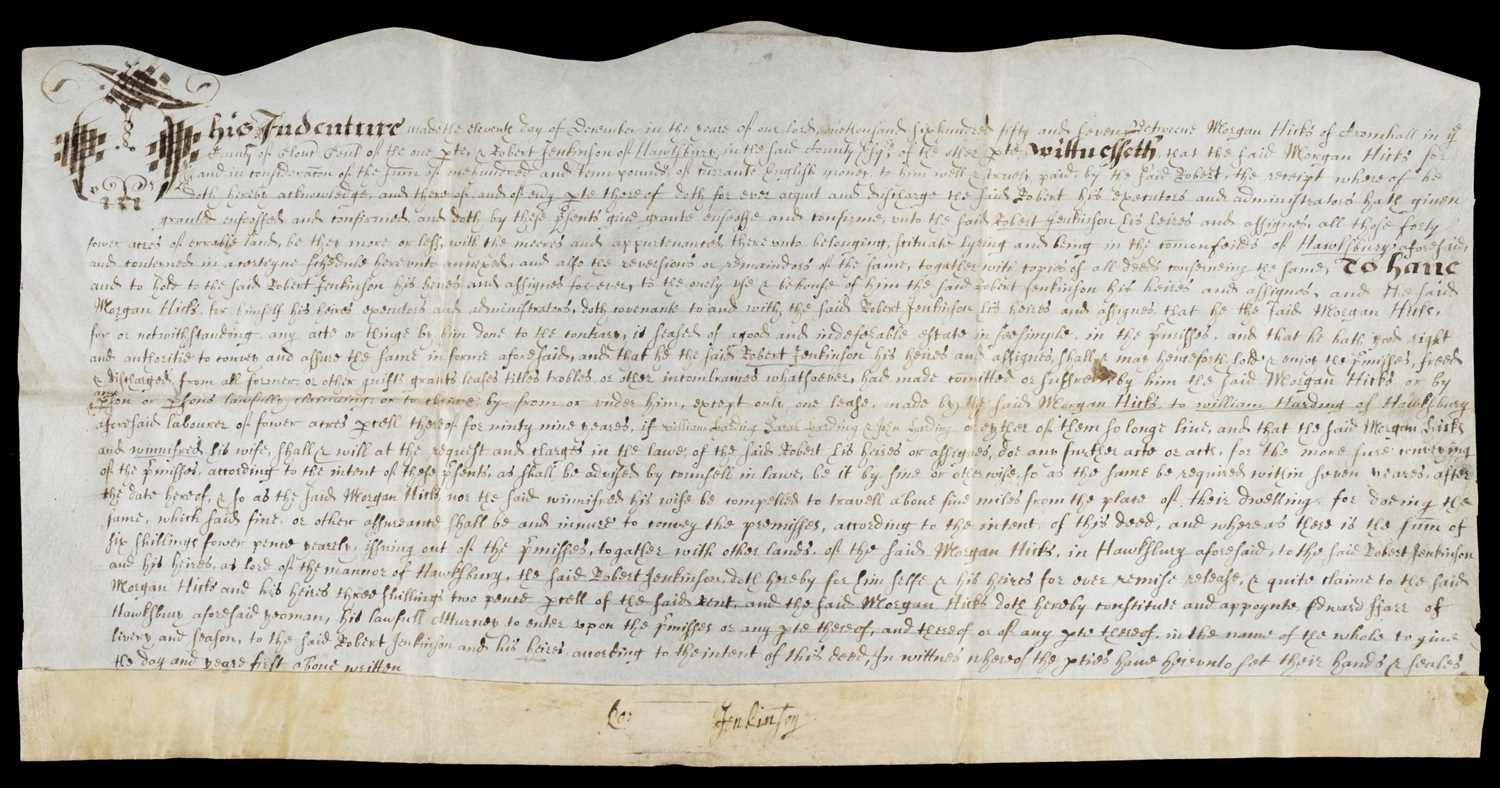 This Indenture made the eleventh day of December in the yeare of our lord, one thousand sixhundred fifty and seven Betweene Morgan Hicks of Cromhall in ye
County of Glouc Gent of the one pte, & Robert Jenkinson of Hawksbury in the said County Esqr of the other pte, Wittnesseth that the said Morgan Hicks for
and in consideracon of the sum of one hundred and tenn pounds of currante English money to him well & truely paid, by the said Robert, the receipt whereof he
doth hereby acknowledge, and thereof and of eny pte there of doth for ever acquit and discharge the said Robert his executors and administrators hath given
graunted enfeoffed and confirmed and doth by these psents give grante enfeoffe and confirme, unto the said Robert Jenkinson his heires and assignes, all those forty
fower acres of errable land, be they more or less, with the meeres and appurtenances thereunto belonging, scituate lyeing and being in the comonfeilds of Hawksbury aforesaid,
and conteined in a certeyne schedule hereunto annexed, and also the reversions or remainders of the same, togather with copies of all deeds conserneing the same, To have
and to hold to the said Robert Jenkinson his heires and assignes for ever, to the onely use & behoofe of him the said Robert Jenkinson his heires and assignes, and the said
Morgan Hicks for himself his heires executors and administrators, doth covenante to and with the said Robert Jenkinson his heires and assignes that he the said Morgan Hicks,
for or notwithstanding any acte or thinge by him done to the contrary, is seased of a good and indefesable estate in fee simple in the pmisses, and that he hath good right
and authoritie to convey and assure the same in forme aforesaid, and that he the said Robert Jenkinson his heires and assignes shall & may henceforth hold & enioy the pmisses, freed
& discharged from all former or other guifts grants leases titles trobles or other incombrances whatsoever, had made comitted or suffred by him the said Morgan Hicks or by
any pson or psons lawfully claimeing or to claime by from or under him, except only one lease, made by the said Morgan Hicks to William Harding of Hawksbury
aforesaid labourer of fower acres pcell thereof for ninty nine yeares, if William Harding Sara Harding & John Harding or eyther of them so longe live, and that the said Morgan Hicks
and winnifred his wife, shall & will at the request and charges in the lawe, of the said Robert his heires or assignes, doe any further acte or acts, for the more sure conveying
of the pmisses, according to the intent of these psents, as shall be advised by counsell in lawe, be it by fine or otherwise, so as the same be required within seven yeares after
the date hereof, & so as the said Morgan Hicks nor the said winnifred his wife be compelled to travell above five miles from the place of their dwelling, for doeing the
same, which said fine or other assurance shall be and innure to convey the premisses, according to the intent of this deed, and whereas there is the sum of
six shillings fower pence yearely, issuing out of the pmisses, togather with other lands of the said Morgan Hicks, in Hawksbury aforesaid, to the said Robert Jenkinson
and his heires, as lord of the mannor of Hawksbury, the said Robert Jenkinson, doth hereby for him selfe & his heires for ever remise release, & quite claime to the said
Morgan Hicks and his heirs three shillings two pence pcell of the said rent, and the said Morgan Hicks doth hereby constitute and appoynte Edward of
Hawksbury aforesaid yeoman, his lawfull Atturney to enter upon the pmisses or any pte thereof, and thereof or of any pte thereof, in the name of the whole to give
livery and season, to the said Robert Jenkinson and his heires according to the intent of this deed, In wittnes whereof the pties have hereunto set their hands & seales
the day and yeare first above written
Ro: Jenkinson